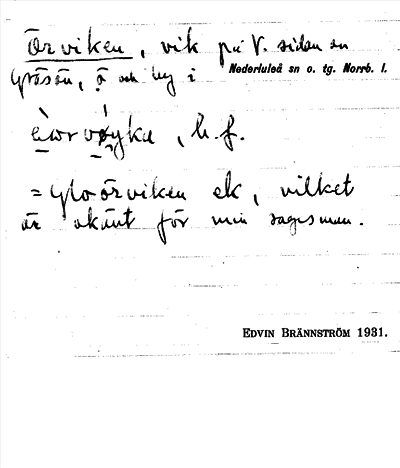 Örviken, vik på V. sidan av
Gråsön, ö och by i Nederluleå sn o. tg. Norrb. l.
b. f.
= Yloörviken ek, vilket
är okänt för min sagesman.
EDVIN BRÄNNSTRÖM 1931.